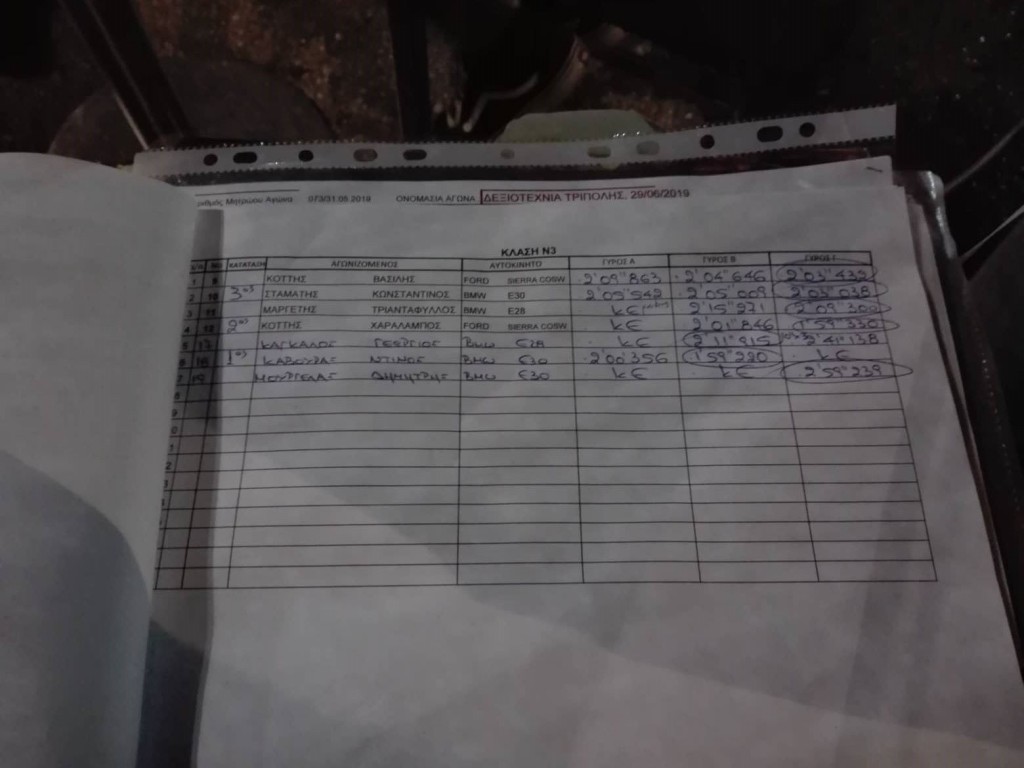 ριθμός Μητρώου Αγώνα 073/31.05.2019 ΟΝΟΜΑΣΙΑ ΑΓΩΝΑ ΔΕΞΙΟΤΕΧΝΙΑ ΤΡΙΠΟΛΗΣ, 29/06/2019
ΚΛΑΣΗ N3
ΚΑΤΑΤΑΞΗ ΑΓΩΝΙΖΟΜΕΝΟΣ ΑΥΤΟΚΙΝΗΤΟ ΓΥΡΟΣ Α ΓΥΡΟΣ Β ΓΥΡΟΣ Γ
1 ΚΟΤΤΗΣ ΒΑΣΙΛΗΣ FORD SIERRA COSW 2'09"863 2'04"646
2 10 3ος ΣΤΑΜΑΤΗΣ ΚΩΝΣΤΑΝΤΙΝΟΣ BMW E30 2'05"009 2'03"038
3 ΜΑΡΓΕΤΗΣ ΤΡΙΑΝΤΑΦΥΛΛΟΣ BMW E28 κε 2'15"271 2'09"300
4 2ος ΚΟΤΤΗΣ ΧΑΡΑΛΑΜΠΟΣ FORD SIERRA COSW κε 2'01"846 1'59"330
5 17 ΚΑΓΚΑΛΟΣ ΓΕΩΡΓΙΟΣ BMW E28 κε 2'11"915 2'41"138
6 18 1ος ΚΑΒΟΥΡΑΣ ΝΤΙΝΟΣ BMW E30 2'00"356 1'59"220 κε
7 19 ΔΗΜΗΤΡΗΣ BMW E30 κε κε 2'59"239